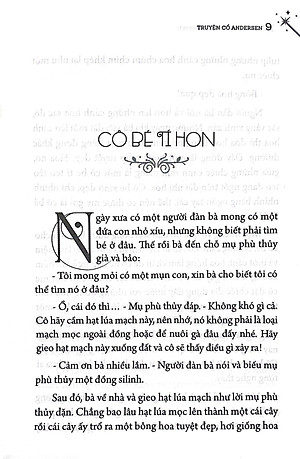 TRUYỆN CỔ ANDERSEN 9
CÔ BÉ TÍ HON
Ngày xưa có một người đàn bà mong có một
đứa con nhỏ xíu, nhưng không biết phải tìm
bé ở đâu. Thế rồi bà đến chỗ mụ phù thủy
già và bảo:
- Tôi mong mỏi có một mụn con, xin bà cho biết tôi có
thể tìm nó ở đâu?
- Ồ, cái đó thì... - Mụ phù thủy đáp. - Không khó gì cả.
Cô hãy cầm hạt lúa mạch này, nên nhớ, nó không phải là loại
mạch mọc ngoài đồng hoặc để nuôi gà đâu đấy nhé. Hãy
gieo hạt mạch này xuống đất và cô sẽ thấy điều gì xảy ra!
- Cảm ơn bà nhiều lắm. - Người đàn bà nói và biếu mụ
phù thủy một đồng silinh.
Sau đó, bà về nhà và gieo hạt lúa mạch như lời mụ phù
thủy dặn. Chẳng bao lâu hạt lúa mọc lên thành một cái cây
rồi cái cây ấy trổ ra một bông hoa tuyệt đẹp, hơi giống hoa